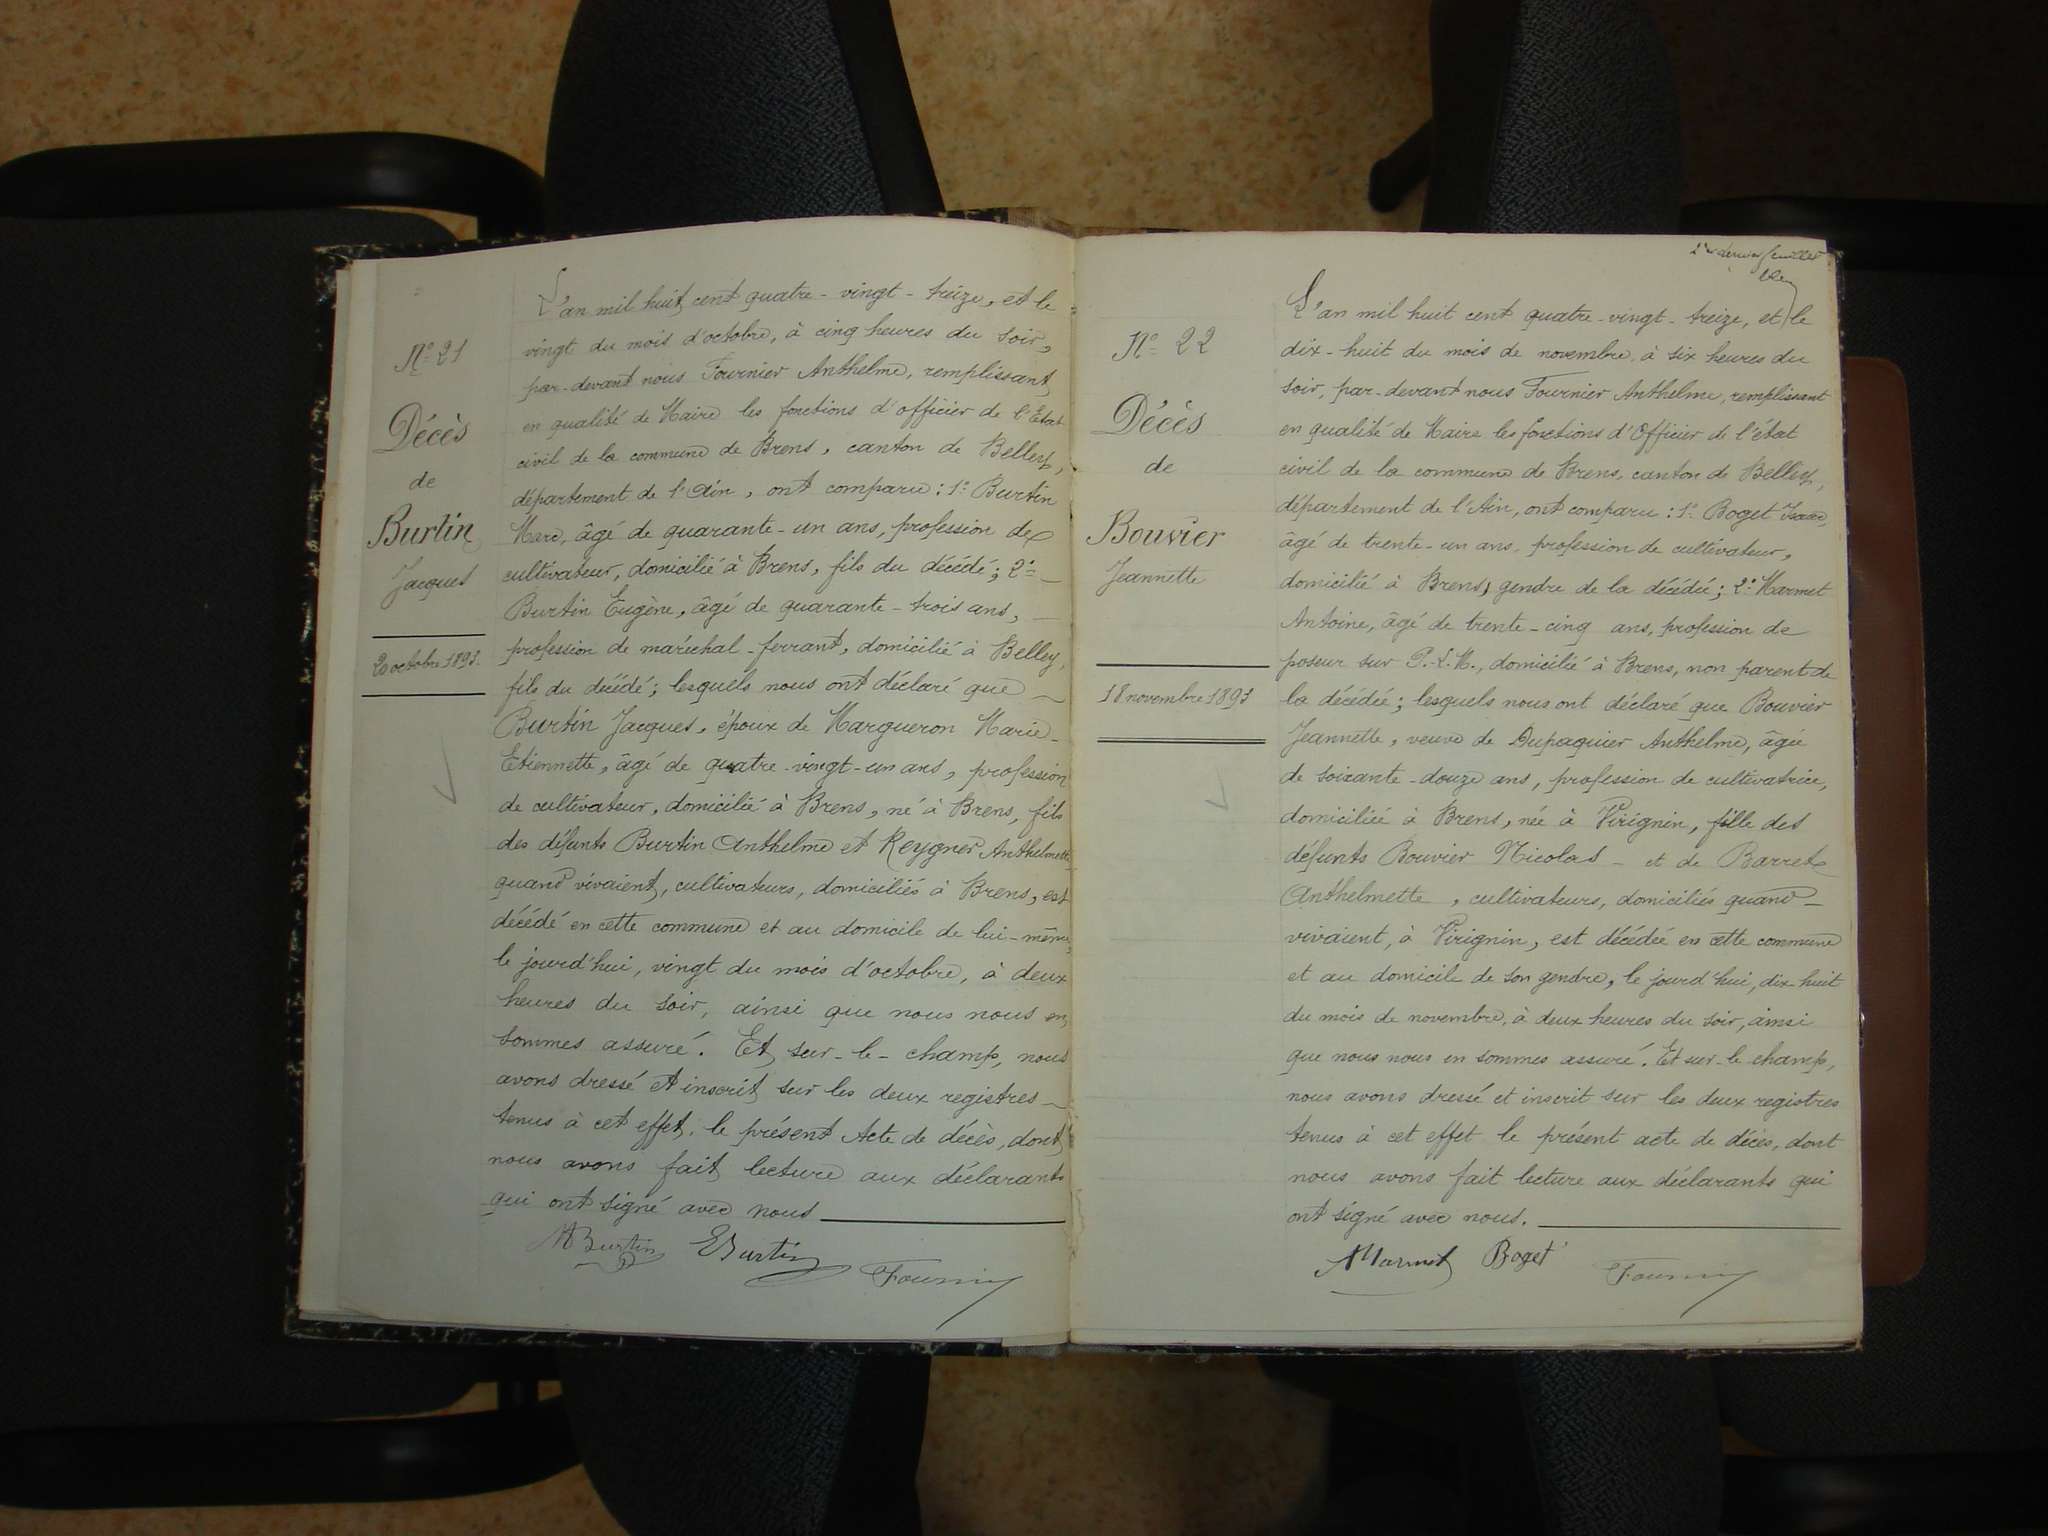 N° 21
Décès
de
Burtin
Jacques
20 octobre 1893.
L'an mil huit cent quatre-vingt-treize, et le
vingt du mois d'octobre, à cinq heures du soir,
par-devant nous Fournier Anthelme, remplissant
en qualité de Maire les fonctions d'officier de l'Etat
civil de la commune de Brens, canton de Belley,
département de l'Ain, ont comparu : 1° Burtin
Marc, âgé de quarante-un ans, profession de
cultivateur, domicilié à Brens, fils du décédé; 2°
Burtin Eugène, âgé de quarante-trois ans,
profession de maréchal-ferrant, domicilié à Belley,
fils du décédé; lesquels nous ont déclaré que
Burtin Jacques, époux de Margueron Marie-
Etiennette, âgé de quatre-vingt-un ans, profession
de cultivateur, domicilié à Brens, né à Brens, fils
des défunts Burtin Anthelme et Reygner Anthelmette
quand vivaient, cultivateurs, domiciliés à Brens, est
décédé en cette commune et au domicile de lui-même,
le jourd'hui, vingt du mois d'octobre, à deux
heures du soir, ainsi que nous nous en
sommes assuré. Et, sur-le-champ, nous
avons dressé et inscrit sur les deux registres
tenus à cet effet, le présent Acte de décès, dont
nous avons fait lecture aux déclarants
qui ont signé avec nous
MBurtin EBurtin
Fournier
dernier feuillet
N° 22
Décès
de
Bouvier
Jeannette
18 novembre 1893
L'an mil huit cent quatre-vingt-treize, et le
dix-huit du mois de novembre, à six heures du
soir, par-devant nous Fournier Anthelme, remplissant
en qualité de Maire les fonctions d'Officier de l'état
civil de la commune de Brens, canton de Belley,
département de l'Ain, ont comparu : 1° Boget Isaac,
âgé de trente-un ans, profession de cultivateur,
domicilié à Brens, gendre de la décédée; 2° Marmet
Antoine, âgé de trente-cinq ans, profession de
poseur sur P.-L.-M., domicilié à Brens, non parent de
la décédée; lesquels nous ont déclaré que Bouvier
Jeannette, veuve de Dupaquier Anthelme, âgée
de soixante-douze ans, profession de cultivatrice,
domiciliée à Brens, née à Virignin, fille des
défunts Bouvier Nicolas - et de Barret
Anthelmette, cultivateurs, domiciliés quand
vivaient, à Virignin, est décédée en cette commune
et au domicile de son gendre, le jourd'hui, dix-huit
du mois de novembre, à deux heures du soir, ainsi
que nous nous en sommes assuré. Et sur-le champ,
nous avons dressé et inscrit sur les deux registres
tenus à cet effet le présent acte de décès, dont
nous avons fait lecture aux déclarants qui
ont signé avec nous.
Marmet Boget
Fournier